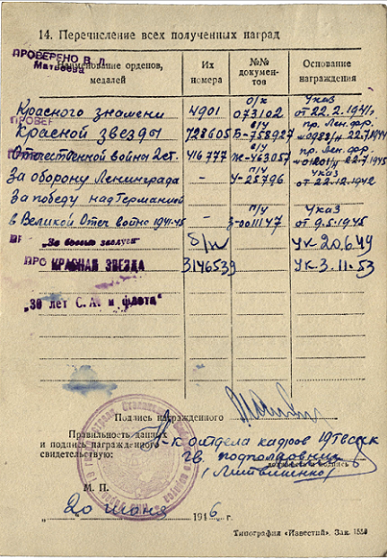 14. Перечисление всех полученных наград
ПРОВЕРЕНО В. Л.
Матвеева
Наименование орденов, медалей
Их номера
№№ документов
Основание награждения
Красного знамени 4901 о/к 073102 Указ от 22.2.1941г.
Красной Звезды 728605 в/у Б-758927 пр. Лен. фр. 22.7.194
Отечественной война 2 ст. 416777 в/у Ж-463057 пр. Лен. фр. 22.7.1945
За оборону Ленинграда - У-25796 Указ от 22.12.1942
За победу над Германией
в Великой Отеч. войне 1941-45 - п/у З-0011147 Указ от 9.5.1945
"За боевые заслуги" б/н Ук. 20.6.49
ПРО КРАСНАЯ ЗВЕЗДА 3146539 Ук. 3.11.53
"30 лет С. А. и флота"
Подпись награжденного
Правильность данных
и подпись награжденного
свидетельствую:
отдела кадров
гв. подполковник
(Литвиненко)
М. П.
20 июня 1946 г.
Типография «Известий». Зак. 1550